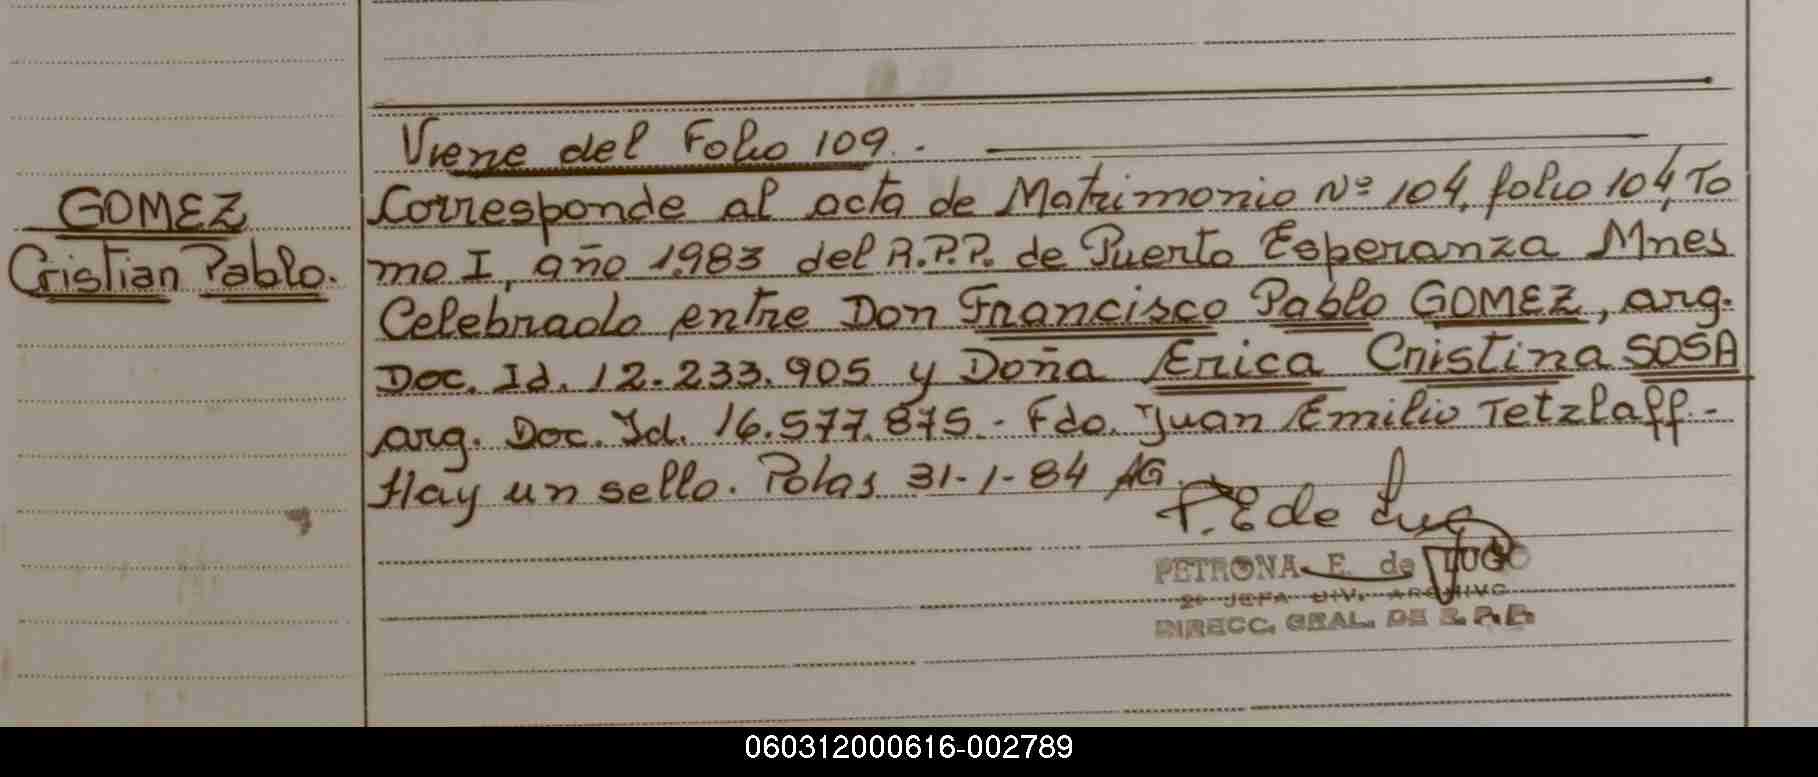 Viene del Folio 109.-
GOMEZ
Cristian Pablo.
Corresponde al acta de Matrimonio Nº 104, folio 104, To
mo I, año 1.983 del R.P.P. de Puerto Esperanza Mnes
Celebrado entre Don Francisco Pablo GOMEZ, arg.
Doc. Id. 12.233.905 y Doña Erica Cristina SOSA
arg. Doc. Id. 16.577.875.- Fdo. Juan Emilio Tetzlaff.-
Hay un sello. Pdas 31-1-84 AG.
P. E de Lugo
PETRONA E. de LUGO
2º JEFA DIV. ARCHIVO
DIRECC. GRAL. DE R.P.P.
060312000616-002789